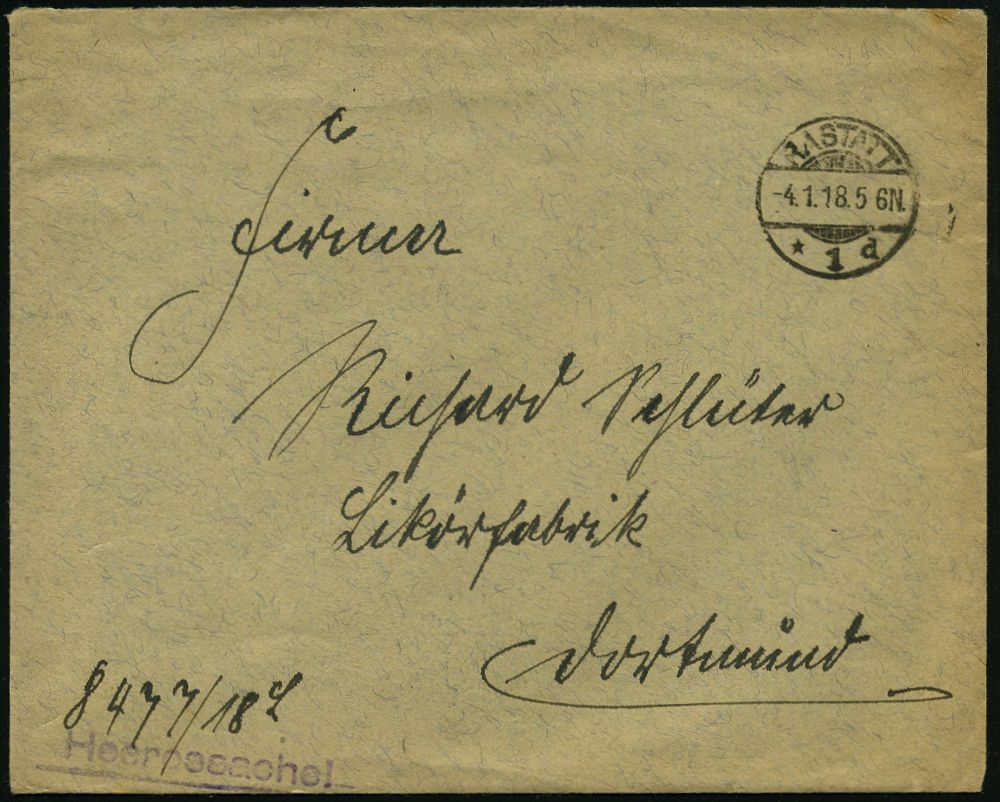 RASTATT
-4.1.18.5 6N.
* 1 d
Firma
Richard Schlüter
Likörfabrik
Dortmund
8477/18 L
Heeressache!